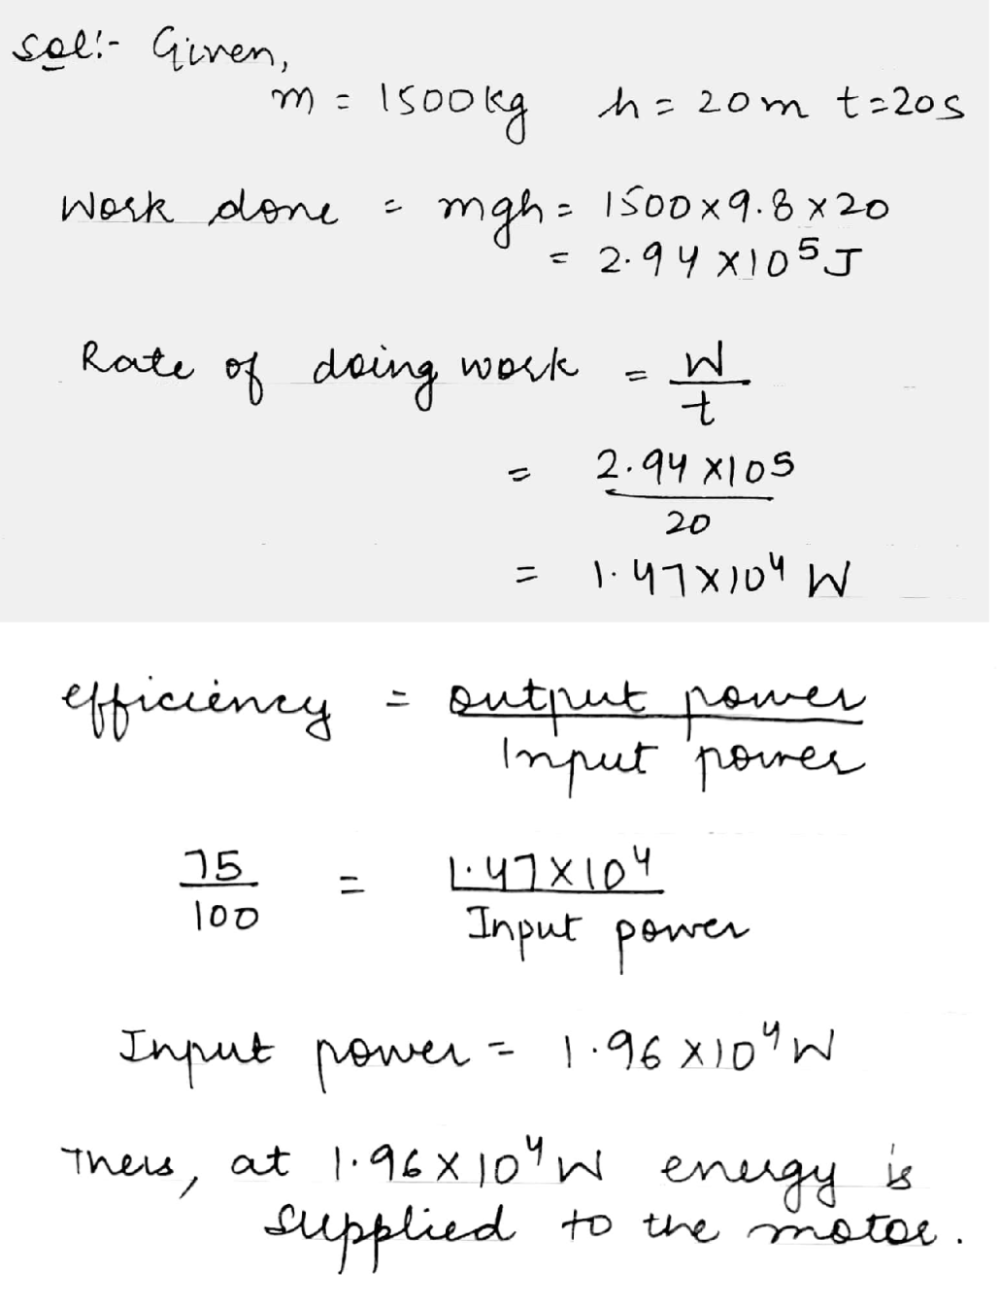 Sol:- Given,
m = 1500kg h = 20m t=20s
Work done = mgh = 1500×9.8×20
= 2.94 ×10⁵J
Rate of doing work = W
t
= 2.94 ×105
20
= 1.47×10⁴ W
efficiency = output power
Input power
75
100
= 1.47×10⁴
Input power
Input power = 1.96 ×10⁴W
Thus, at 1.96×10⁴W energy is
supplied to the motor.